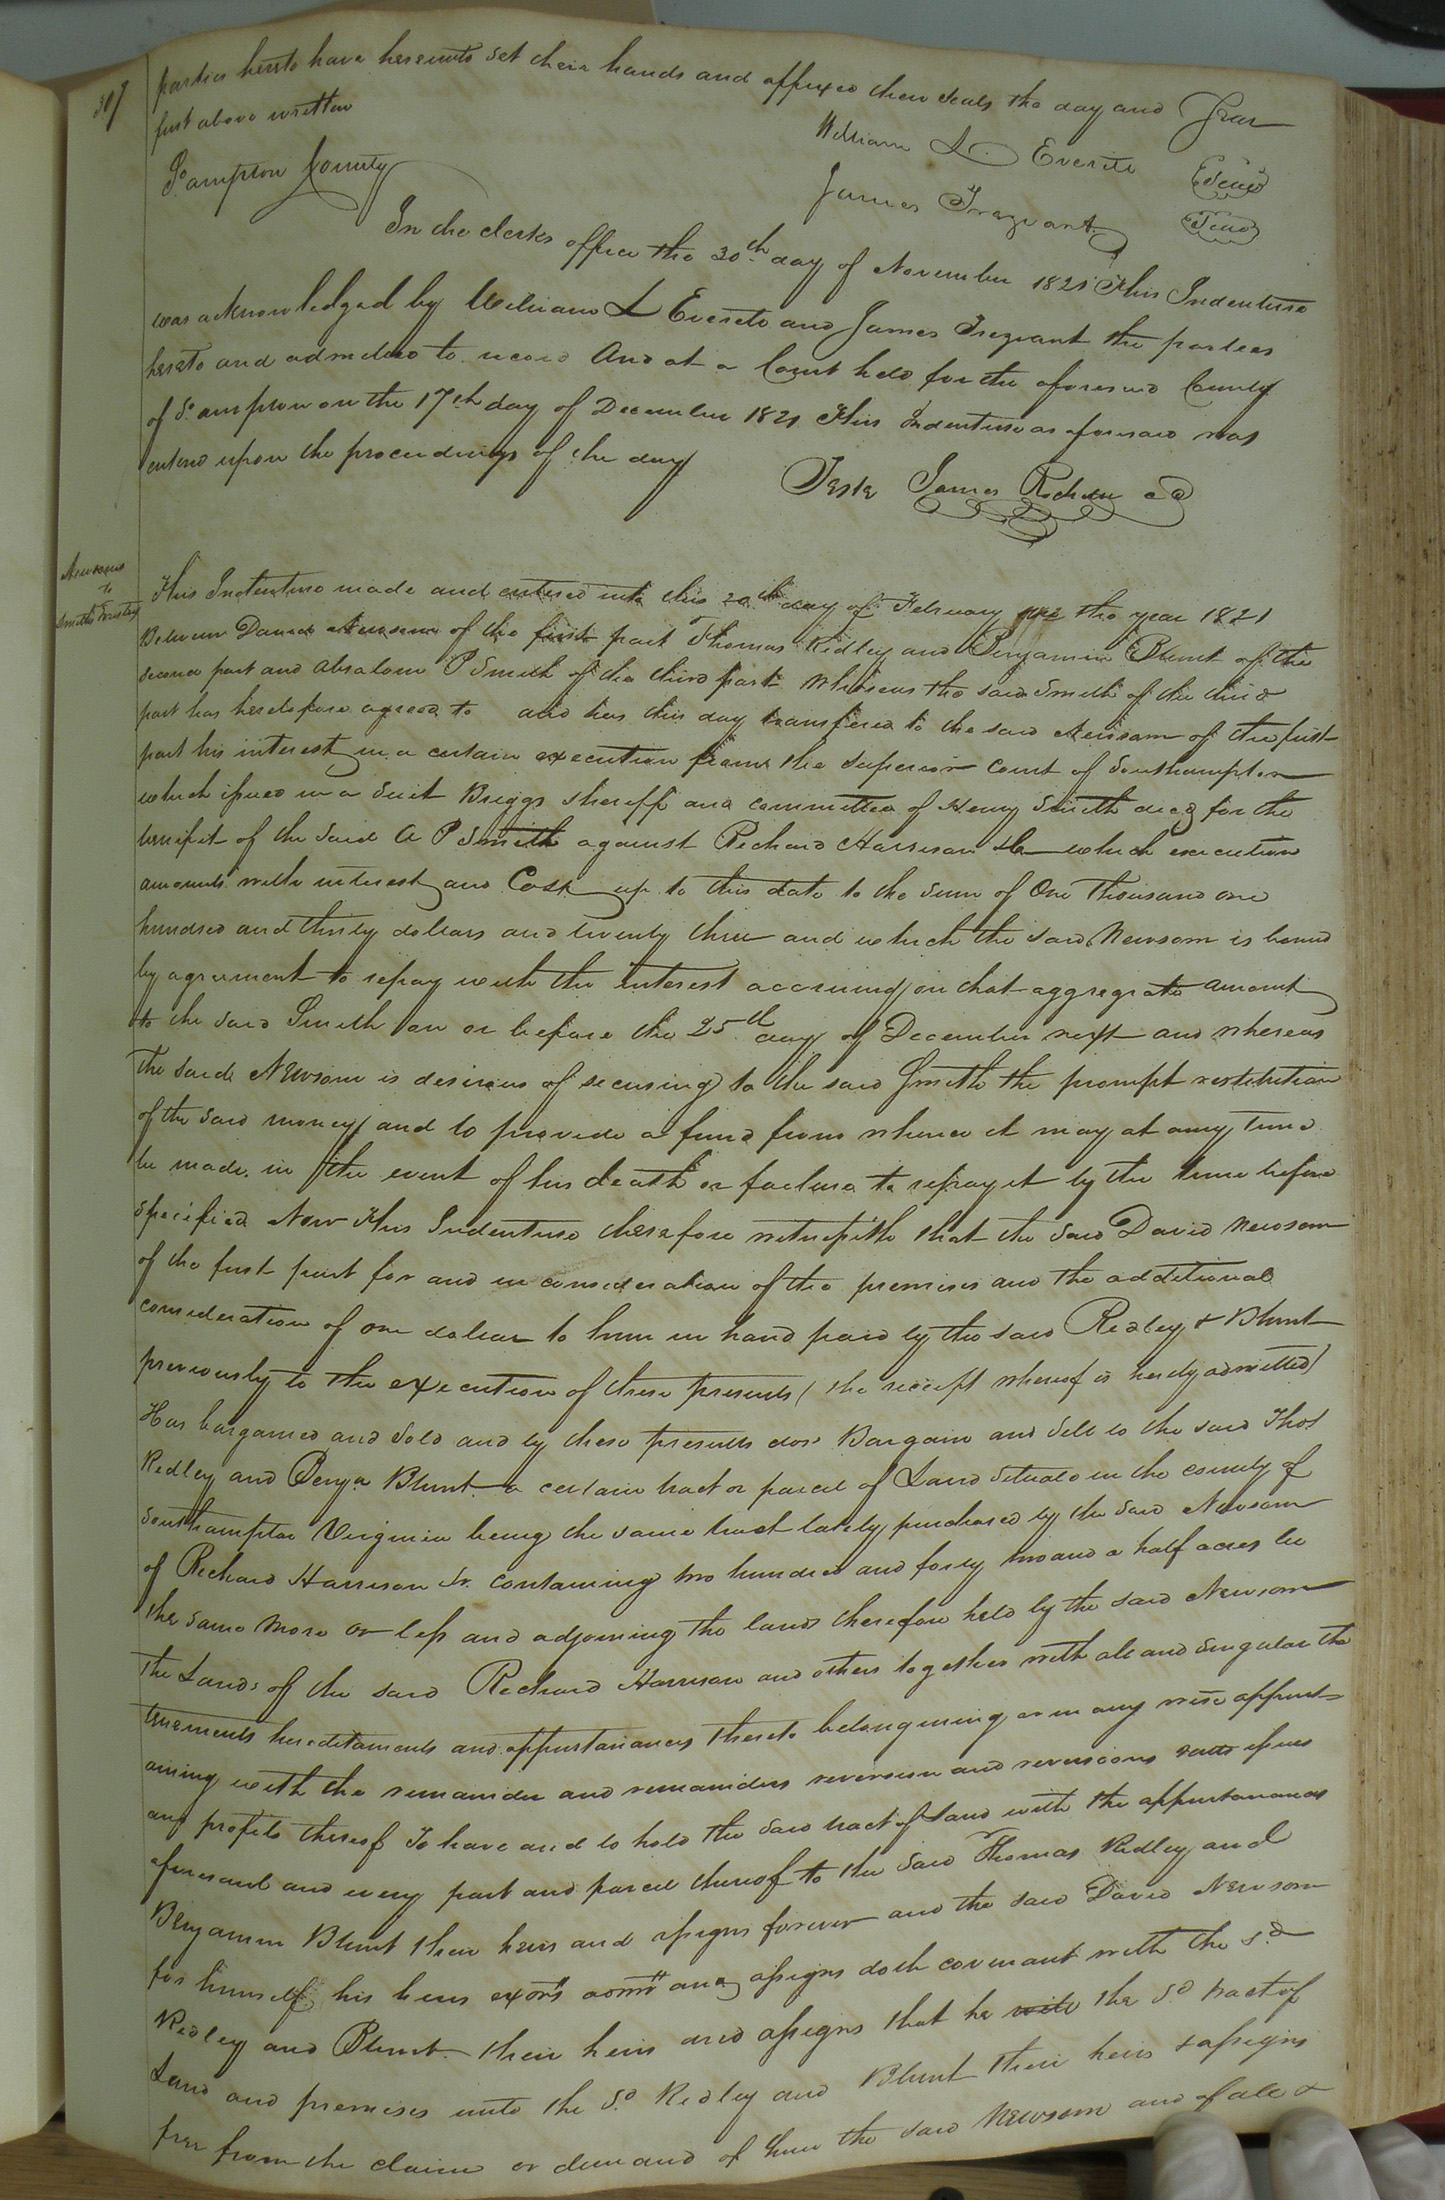 307
parties hereto have hereunto set their hands and affixed their seals the day and year
first above written
William L. Everitt Seal
James Trezvant Seal
So.ampton County
In the clerks office the 30th day of November 1821 This Indenture
was acknowledged by William L Everett and James Trezvant the parties
hereto and admitted to record And at a Court held for the aforesaid County
of So.ampton on the 17th day of December 1821 This Indenture as aforesaid was
entered upon the proceedings of the day
Teste James Rochelle
Newsom
to
Smiths Trustees
This Indenture made and entered into this 20th day of February the year 1821
Between David Newsom of the first part Thomas Ridley and Benjamin Blunt of the
second part and Absalom P Smith of the third part Whereas the said Smith of the third
part has heretofore agreed to and has this day transfered to the said Newsom of the first
part his interest in a certain execution from the superior court of Southampton
which issued in a suit Briggs sheriff and committee of Henry Smith decd for the
benefit of the said A P Smith against Richard Harrison which execution
amounts with interest and Cost up to this date to the sum of One Thousand one
hundred and thirty dollars and twenty three and which the said Newsom is bound
by agreement to repay with the interest accruing on that aggregate amount
to the said Smith on or before the 25th day of December next and whereas
the said Newsom is desirous of securing to the said Smith the prompt restitution
of the said money and to provide a fund from whence it may at any time
be made in the event of his death or failure to repay it by the time before
specified Now This Indenture therefore witnesseth that the said David Newsom
of the first part for and in consideration of the premises and the additional
consideration of one dollar to him in hand paid by the said Ridley & Blunt
previously to the execution of these presents (the receipt whereof is hereby admitted)
Has bargained and sold and by these presents dos Bargain and Sell to the said Thos
Ridley and Benja Blunt a certain tract or parcel of Land situate in the county of
Southampton Virginia being the same tract lately purchased by the said Newsom
of Richard Harrison Sr. containing two hundred and forty two and a half acres be
the same more or less and adjoining the lands therefore held by the said Newsom
The Lands of the said Richard Harrison and others together with all and singular the
tenements hereditaments and appurtanances thereto belonguing or in any wise appurt-
aining with the remainder and remainders reversion and reversions rents issues
and profits thereof To have and to hold the said tract of Land with the appurtanances
aforesaid and every part and parcel thereof to the said Thomas Ridley and
Benjamin Blunt their heirs and assigns forever and the said David Newsom
for himself his heirs exors admrs and assigns doth covenant with the sd
Ridley and Blunt their heirs and assigns that he will the sd tract of
Land and premises unto the sd Ridley and Blunt their heirs & assigns
free from the claim or demand of him the said Newsom and of all &